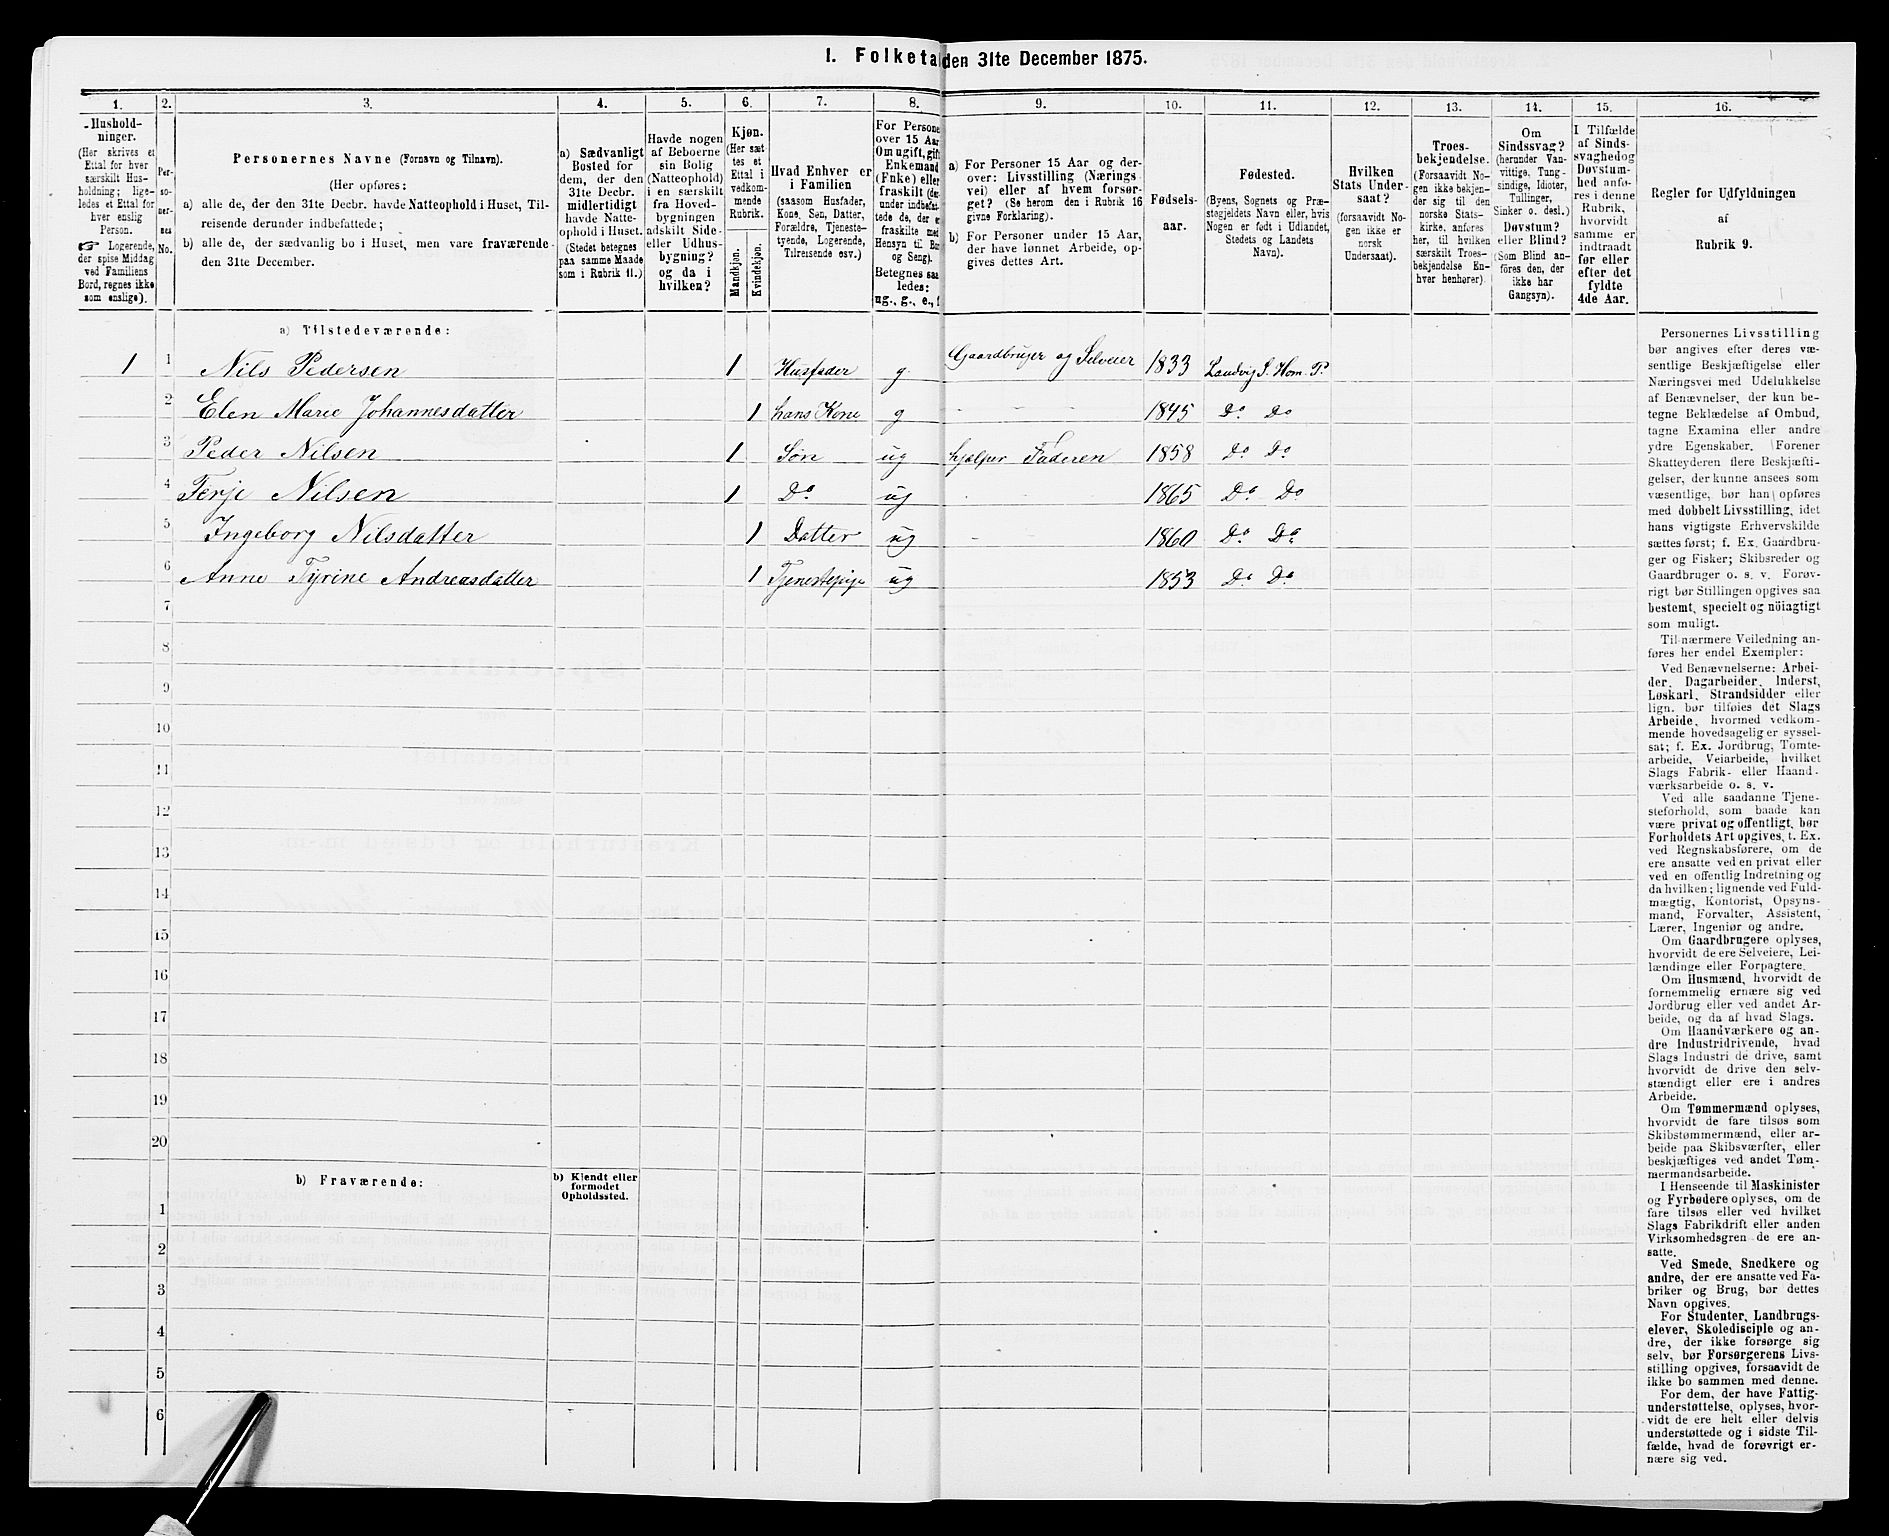 I. Folketal den 31te December 1875.
1.
Hushold-
ninger.
(Her skrives et
Ettal for hver
særskilt Hus-
holdning; lige-
ledes et Ettal for
hver enslig
Person.
☞ Logerende,
der spise Middag
ved Familiens
Bord, regnes ikke
som enslige).
2.
Per-
so-
ner-
nes
No.
3.
Personernes Navne (Fornavn og Tilnavn).
(Her opføres:
a) alle de, der den 31te Decbr. havde Natteophold i Huset, Til-
reisende derunder indbefattede;
b) alle de, der sædvanlig bo i Huset, men vare fraværende
den 31te December.
4.
a) Sædvanligt
Bosted for
dem, der den
31te Decbr.
midlertidigt
havde Natte-
ophold i Huset.
(Stedet betegnes
paa samme Maade
som i Rubrik 11.)
5.
Havde nogen
af Beboerne
sin Bolig
(Natteophold)
i en særskilt
fra Hoved-
bygningen
adskilt Side-
eller Udhus-
bygning?
og da i
hvilken?
6.
Kjøn.
(Her sæt-
tes et
Ettal i
vedkom-
mende
Rubrik.
Mandkjøn.
Kvindekjøn.
7.
Hvad Enhver er
i Familien
(saasom Husfader,
Kone, Søn, Datter,
Forældre, Tjeneste-
tyende, Logerende,
Tilreisende osv.)
8.
For Persone
over 15 Aar
Om ugift, gift
Enkemand
(Enke) eller
fraskilt (der-
under indbefat-
tede de, der er
fraskilte med
Hensyn til Bor
og Seng).
Betegnes saa
ledes:
ug., g., e., f
9.
a) For Personer 15 Aar og der-
over: Livsstilling (Nærings
vei) eller af hvem forsør-
get? (Se herom den i Rubrik 16
givne Forklaring).
b) For Personer under 15 Aar,
der have lønnet Arbeide, op-
gives dettes Art.
10.
Fødsels-
aar.
11.
Fødested.
(Byens, Sognets og Præ-
stegjeldets Navn eller, hvis
Nogen er født i Udlandet,
Stedets og Landets
Navn).
12.
Hvilken
Stats Under-
saat?
(forsaavidt No-
gen ikke er
norsk
Undersaat).
13.
Troes-
bekjendelse.
(Forsaavidt No-
gen ikke bekjen-
der sig til den
norske Stats-
kirke, anføres
her, til hvilken
særskilt Troes-
bekjendelse En-
hver henhører).
14.
Om
Sindssvag?
(herunder Van-
vittige, Tung-
sindige, Idioter,
Tullinger,
Sinker o. desl.)
Døvstum?
eller Blind?
(Som Blind an-
føres den, der
ikke har
Gangsyn).
15.
I Tilfælde
af Sinds-
svaghed og
Døvstum-
hed anfø-
res i denne
Rubrik,
hvorvidt
samme er
indtraadt
før eller
efter det
fyldte
4de Aar.
16.
Regler for Udfyldningen
af
Rubrik 9.
a) Tilstedeværende:
1 1 Nils Pedersen 1 Husfader g Gaardbruger og Selveier 1833 Landvig S. Hom. P.
2 Elen Marie Johannesdatter 1 hans Kone g - - 1845 Do Do
3 Peder Nilsen 1 Søn ug hjælper Faderen 1858 Do Do
4 Terje Nilsen 1 Do ug - - 1865 Do Do
5 Ingeborg Nilsdatter 1 Datter ug - - 1860 Do Do
6 Anne Tyrine Andreasdatter 1 Tjenestepige ug 1853 Do Do
7
8
9
10
11
12
13
14
15
16
17
18
19
20
b) Fraværende:
b) Kjendt eller
formodet
Opholdssted.
1
2
3
4
5
6
Personernes Livsstilling
bør angives efter deres væ-
sentlige Beskjæftigelse eller
Næringsvei med Udelukkelse
af Benævnelser, der kun be-
tegne Beklædelse af Ombud,
tagne Examina eller andre
ydre Egenskaber. Forener
Skatteyderen flere Beskjæfti-
gelser, der kunne ansees som
væsentlige, bør han opføres
med dobbelt Livsstilling, idet
hans vigtigste Erhvervskilde
sættes først; f. Ex. Gaardbru-
ger og Fisker; Skibsreder og
Gaardbruger o. s. v. Forøv-
rigt bør Stillingen opgives saa
bestemt, specielt og nöiagtigt
som muligt.
Til nærmere Veiledning an-
føres her endel Exempler:
Ved Benævnelserne: Arbei-
der, Dagarbeider, Inderst,
Løskarl, Strandsidder eller
lign. bør tilføies det Slags
Arbeide, hvormed vedkom-
mende hovedsagelig er syssel-
sat; f. Ex. Jordbrug, Tomte-
arbeide, Veiarbeide, hvilket
Slags Fabrik- eller Haand-
værksarbeide o. s. v.
Ved alle saadanne Tjene-
steforhold, som baade kan
være privat og offentligt, bør
Forholdets Art opgives, t. Ex.
ved Regnskabsførere, om de
ere ansatte ved en privat eller
ved en offentlig Indretning og
da hvilken; lignende ved Fuld-
mægtig, Kontorist, Opsyns-
mand, Forvalter, Assistent,
Lærer, Ingeniør og andre.
Om Gaardbrugere oplyses,
hvorvidt de ere Selveiere, Lei-
lændinge eller Forpagtere.
Om Husmænd, hvorvidt de
fornemmelig ernære sig ved
Jordbrug eller ved andet Ar-
beide, og da af hvad Slags.
Om Haandværkere og an-
dre Industridrivende, hvad
Slags Industri de drive, samt
hvorvidt de drive den selv-
stændigt eller ere i andres
Arbeide.
Om Tømmermænd oplyses,
hvorvidt de fare tilsøs som
Skibstømmermænd, eller ar-
beide paa Skibsværfter, eller
beskjæftiges ved andet Tøm-
mermandsarbeide.
I Henseende til Maskinister
og Fyrbødere oplyses, om de
fare tilsøs eller ved hvilket
Slags Fabrikdrift eller anden
Virksomhedsgren de ere an-
satte.
Ved Smede, Snedkere og
andre, der ere ansatte ved Fa-
briker og Brug, bør dettes
Navn opgives.
For Studenter, Landbrugs-
elever, Skoledisciple og an-
dre, der ikke forsørge sig
selv, bør Forsørgerens Livs-
stilling opgives, forsaavidt de
ikke bo sammen med denne.
For dem, der have Fattig-
understøttelse, oplyses, hvor-
vidt de ere helt eller delvis
understøttede og i sidste Til-
fælde, hvad de forøvrigt er-
nære sig ved.